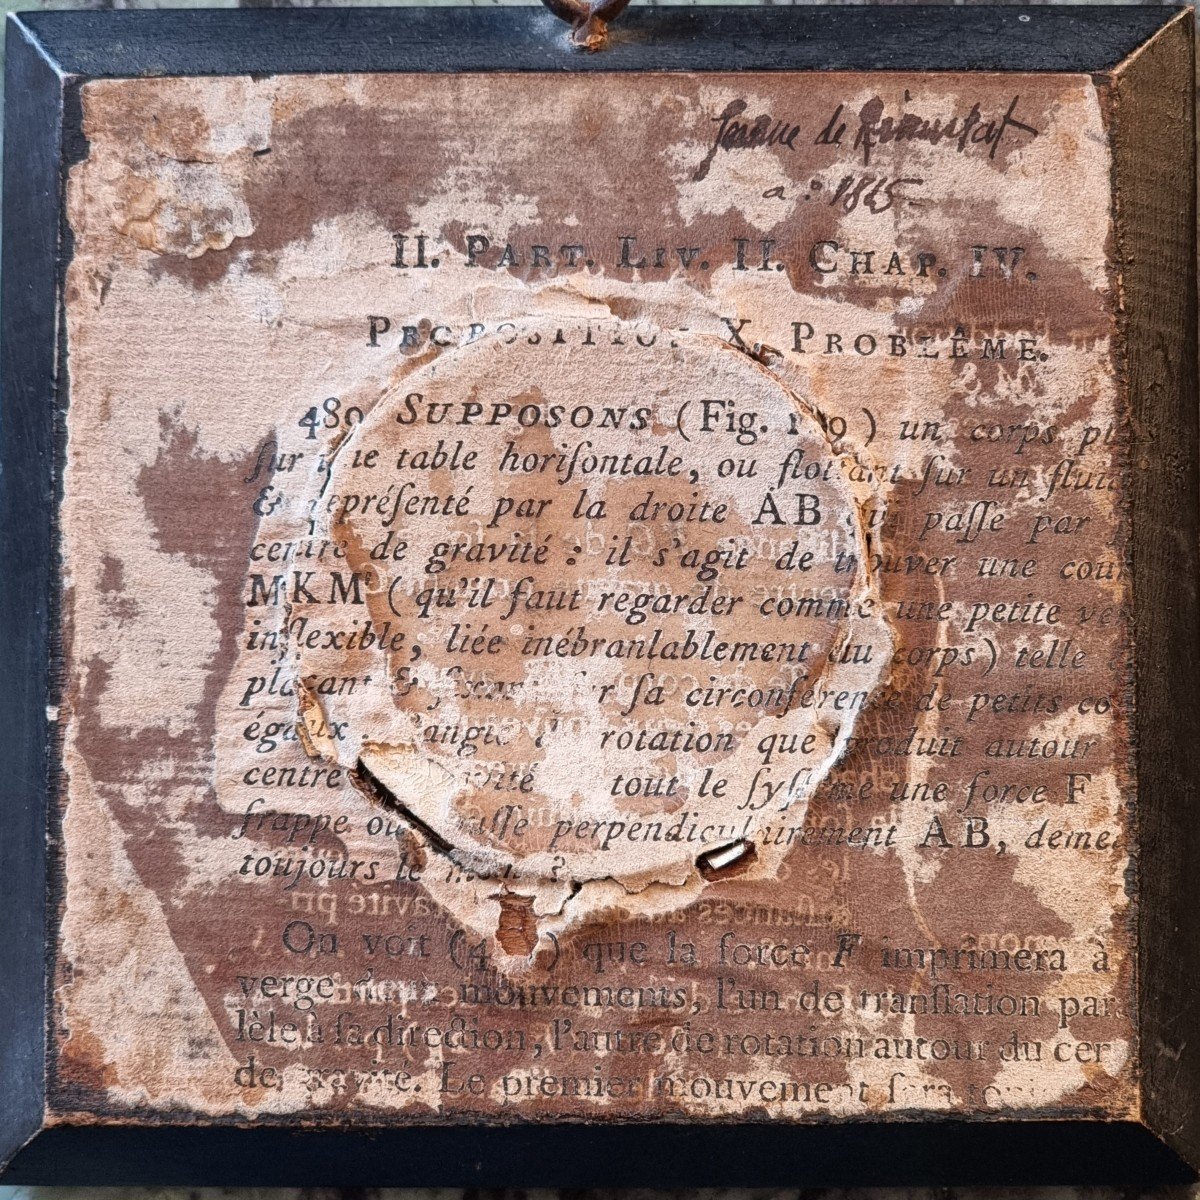 de
a: 1815
II. PART. LIV. II. CHAP. IV.
PROPOSITION X. PROBLÊME.
489 SUPPOSONS (Fig. 1 9) un corps
ſur une table horiſontale, ou flottant ſur un
& repréſenté par la droite AB qui paſſe par
centre de gravité : il s'agit de trouver une
MKM' (qu'il faut regarder comme une petite
inflexible, liée inébranlablement au corps) telle
plaçant & ſa circonférence de petits
égaux rotation que produit autour
centre tout le ſyſtême une force F
frappe ou perpendiculairement AB,
toujours le
On voit (4 ) que la force F imprimera à
verge deux mouvements, l'un de tranſlation
lèle à ſa direction, l'autre de rotation autour du
de gravité. Le premier mouvement ſera